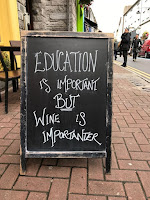 EDUCATION
IS IMPORTANT
BUT
WINE IS
IMPORTANTER